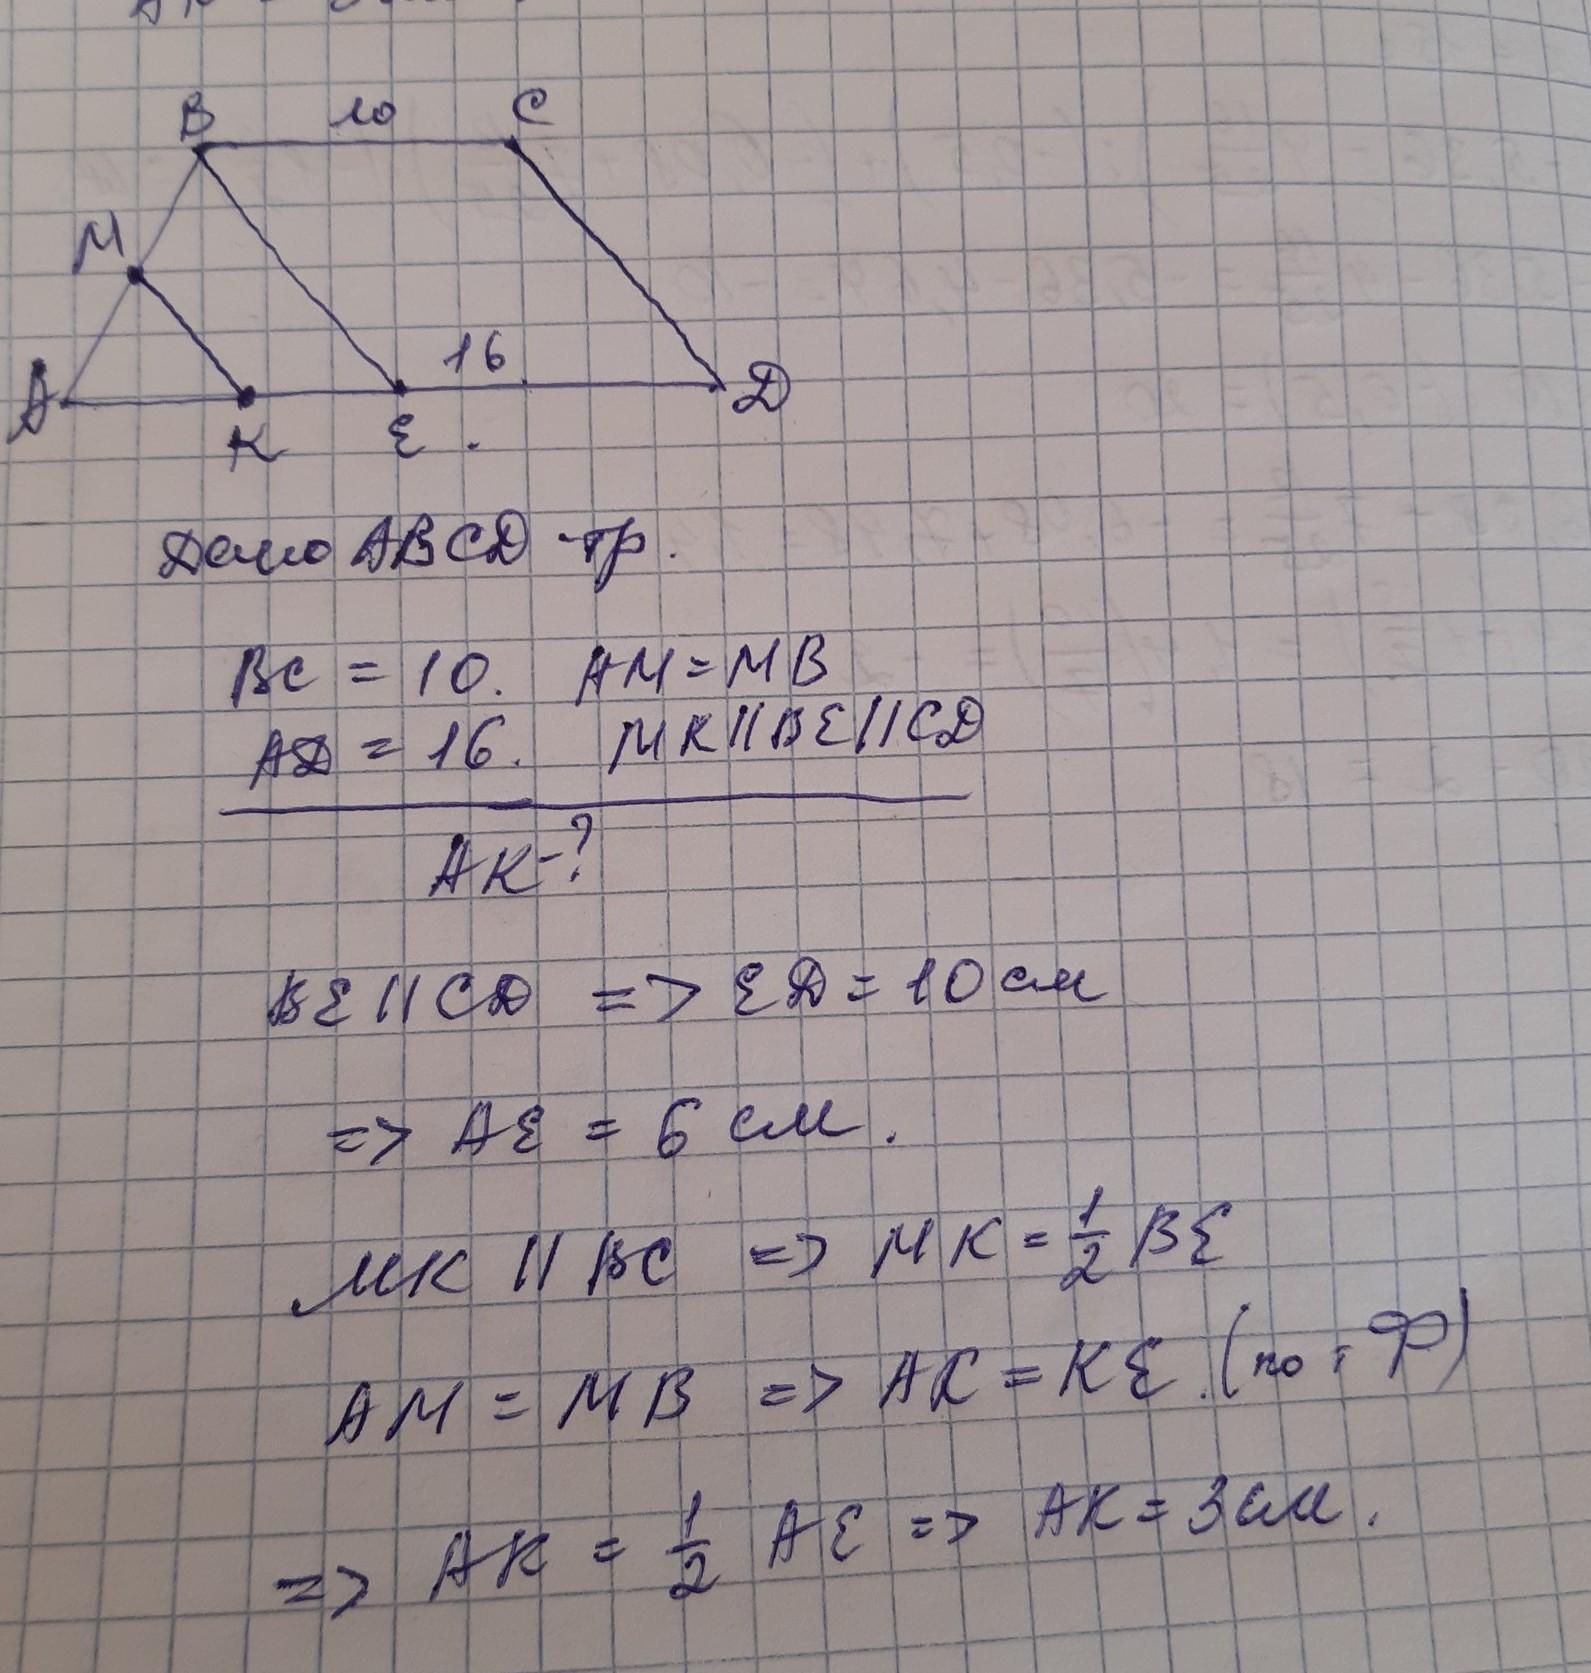 B 10 C
M
A 16 D
K E
Дано ABCD - тр.
BC = 10. AM = MB
AD = 16. MK || BE || CD
AK - ?
BE || CD => ED = 10 см
=> AE = 6 см.
MK || BC => MK = 1/2 BE
AM = MB => AK = KE. (по т Ф)
=> AK = 1/2 AE => AK = 3 см.